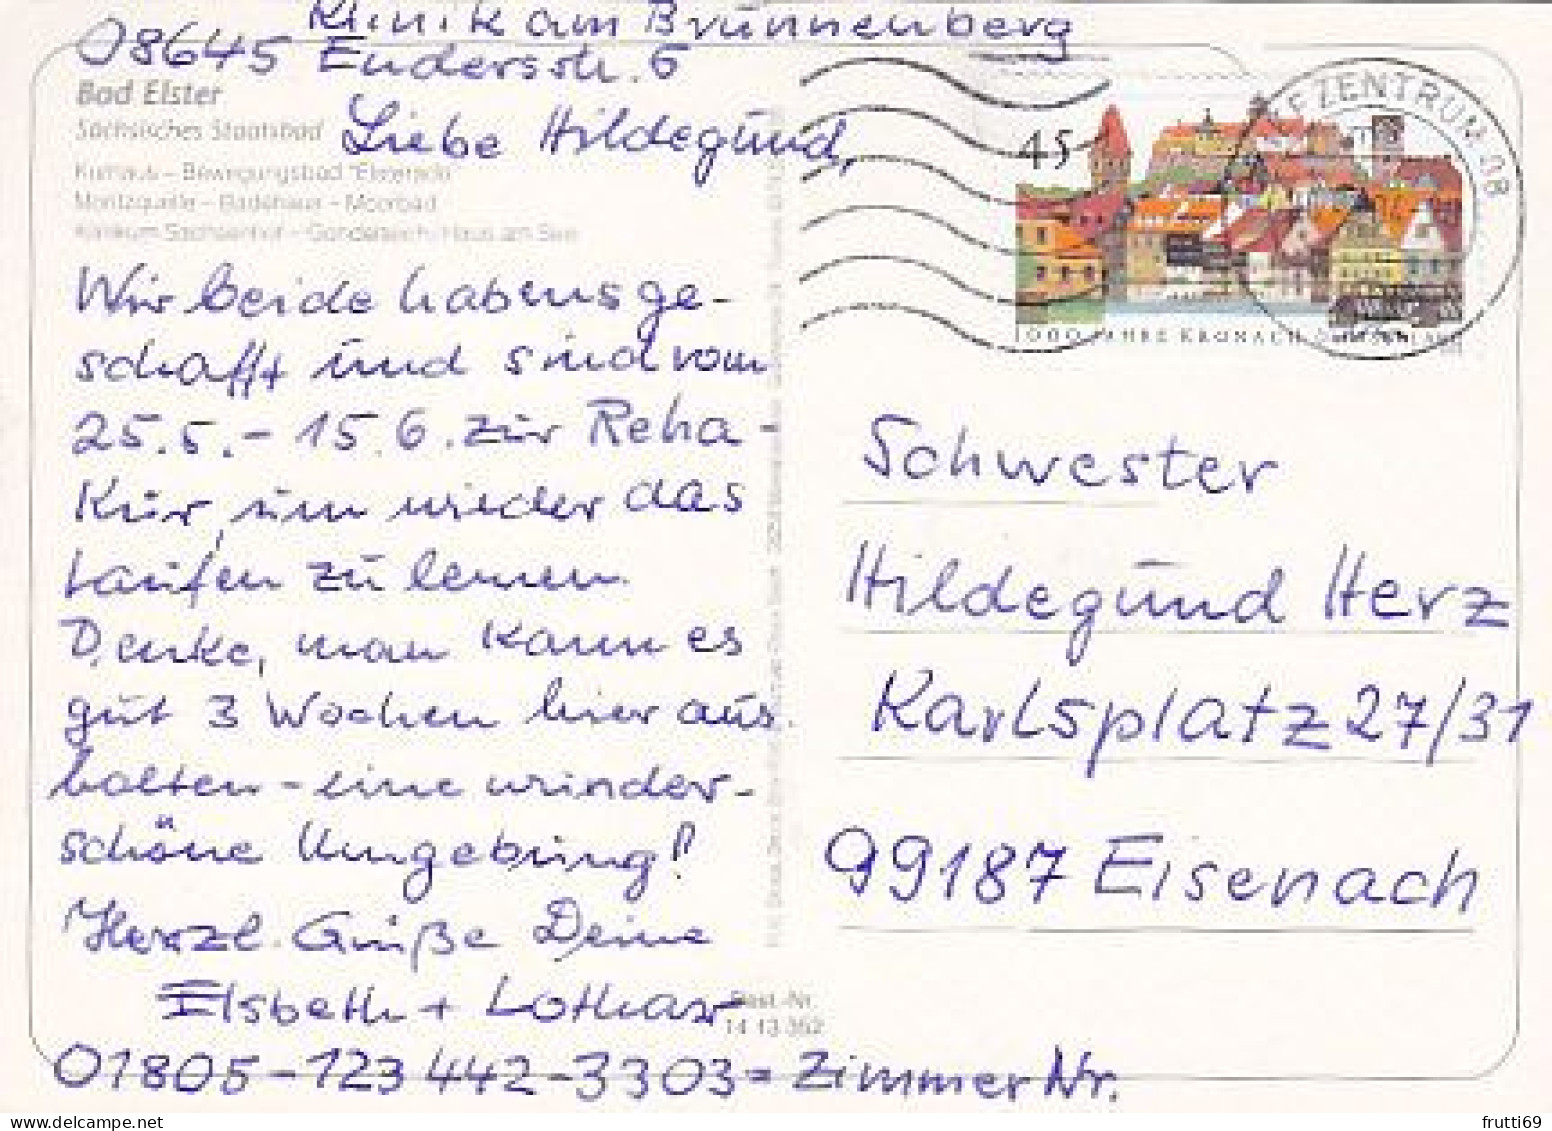 Klinik am Brunnenberg
08645 Endersstr. 6
Bad Elster
Sächsisches Staatsbad
Liebe Hildegund,
Kurhaus – Bewegungsbad "Elsterado"
Moritzquelle – Badehaus – Moorbad
Klinikum Sachsenhof – Gondelteich/Haus am See
Wir beide habens ge-
schafft und sind vom
25.5. – 15.6. zur Reha-
Kur, um wieder das
Laufen zu lernen.
Denke, man kann es
gut 3 Wochen hier aus-
halten – eine wunder-
schöne Umgebung!
Herzl. Grüße Deine
Elsbeth + Lothar
01805-123 442-3303 = Zimmer Nr.
Best.-Nr.
14 13 352
45
1000 JAHRE KRONACH DEUTSCHLAND
ZENTRUM 08
Schwester
Hildegund Herz
Karlsplatz 27/31
99187 Eisenach
frutti69